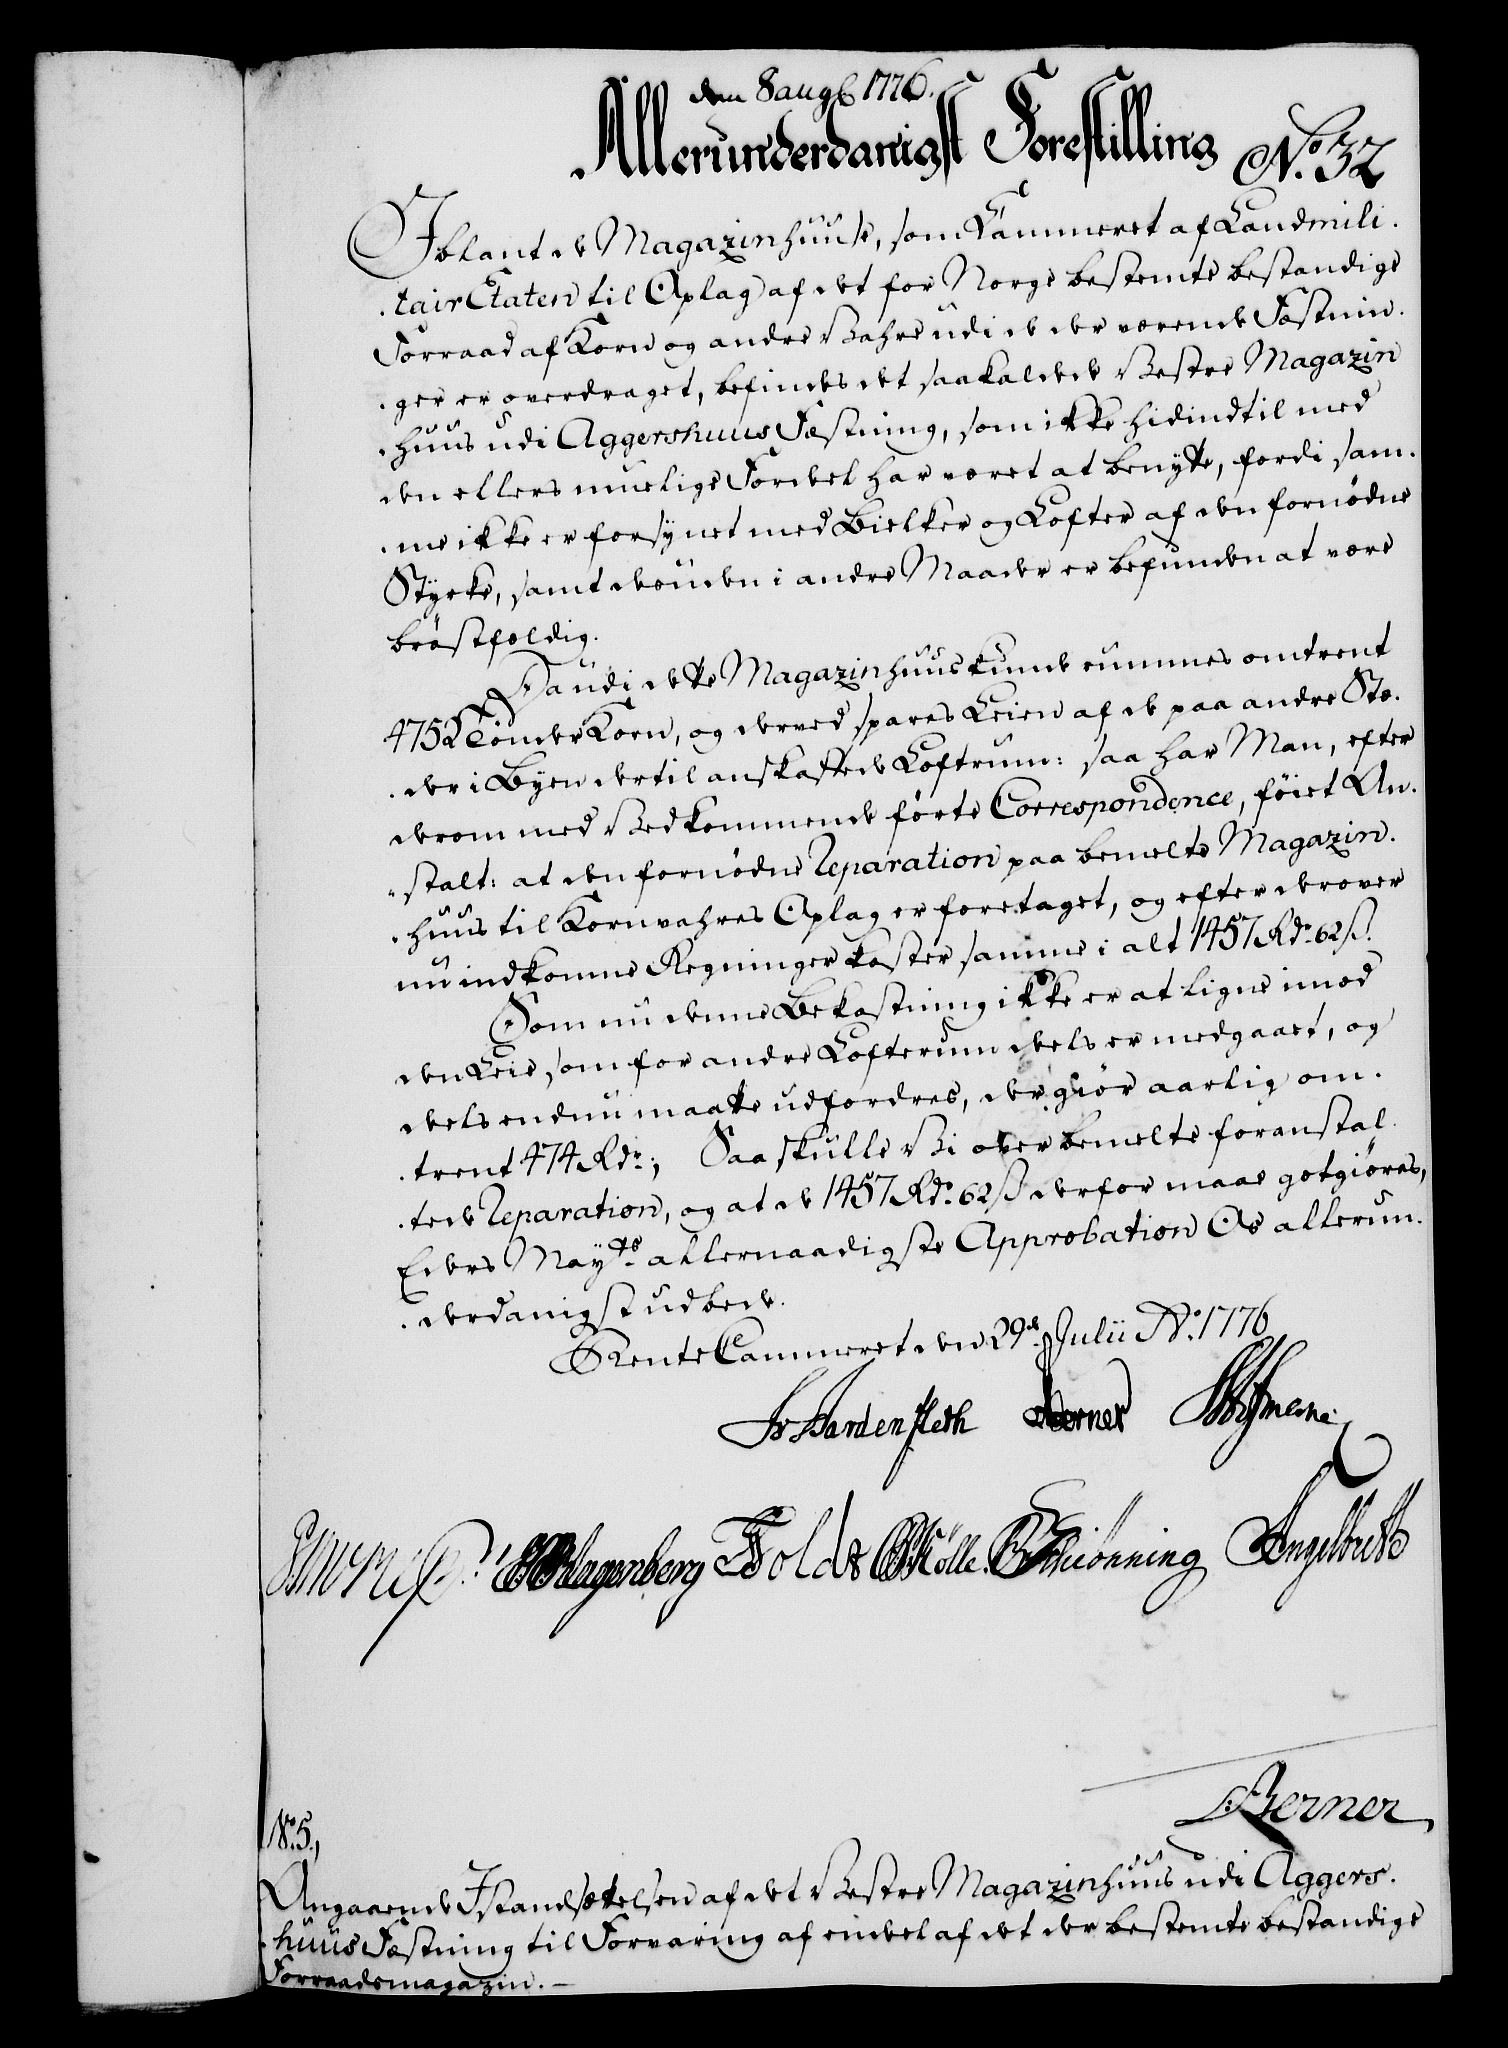 den 8 aug 1776.
Allerunderdanigst Forestilling No. 32
Jblant de Magazinhuuse, som Cammeret af Landmili-
tair Etaten til Oplag af det for Norge bestemte bestandige
Forraad af Korn og andre Vahre udi de der værende Fæstnin-
ger er overdraget, befindes det saakaldede Vestre Magazin
huus udi Aggershuus Fæstning, som ikke hidindtil med
den ellers muelige Fordeel har været at benytte, fordi sam-
me ikke er forsynet med Bielker og Lofter af den fornødne
Styrke, samt desuden i andre Maader er befunden at være
brøstfældig.
Da udi dette Magazinhuus kunde rummes omtrent
4752 Tønder Korn, og derved spares Leien af de paa andre Stæ-
der i Byen dertil anskaffede Loftrum: saa har Man, efter
derom med Vedkommende førte Correspondence, føiet An-
stalt: at den fornødne Reparation paa bemelte Magazin-
huus til Kornvahres Oplag er foretaget, og efter derover
nu indkomne Regninger koster samme i alt 1457 Rdr. 62 s.
Som nu denne Bekostning ikke er at ligne imod
den Leie, som for andre Lofterum deels er medgaaet, og
deels endnu maatte udfordres, der giør aarlig om-
trent 474 Rdr.; Saa skulle Vi over bemelte foranstal-
tede Reparation, og at de 1457 Rdr. 62 s derfor maae gotgiøres,
Eders Mayts. allernaadigste Approbation Os allerun-
derdanigst udbede.
RenteCammeret den 29de Julii Ao. 1776
Bardenfleth Berner
Klagenberg Told Mølle. Schiønning Engelbreth
Berner
No. 5.,
Angaaende Istandsættelsen af det Vestre Magazinhuus udi Aggers-
huus Fæstning til Forvaring af endeel af det der bestemte bestandige
Forraadsmagazin. –